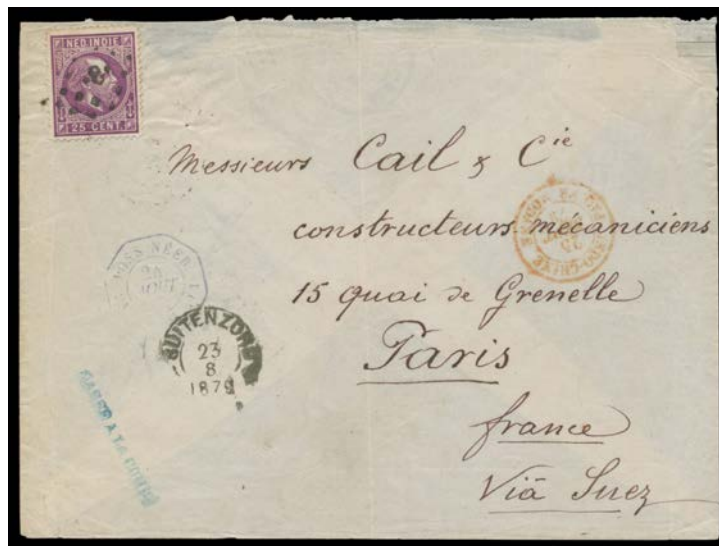 NED. INDIE
8
25 CENT.
Messieurs Cail & Cie
constructeurs mécaniciens
15 quai de Grenelle
Paris
france
Viā Suez
POSS. NÉER
AOUT
BUITENZORG
23
8
1879